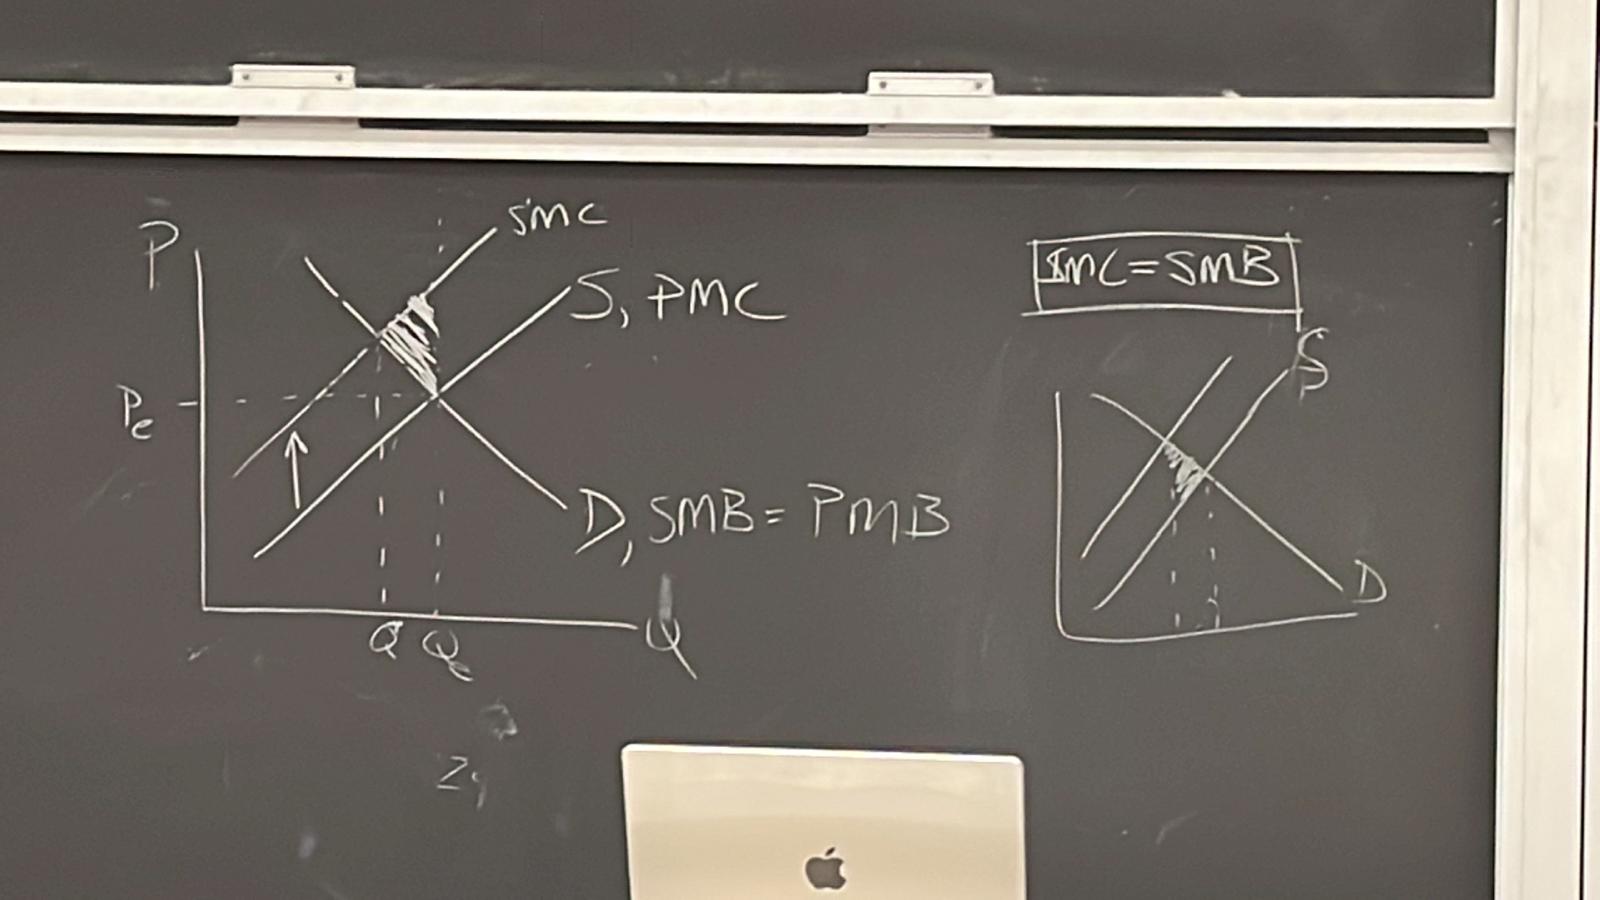 P
SMC
S, PMC
Pe
D, SMB = PMB
Q Qe
Q
SMC = SMB
S
D